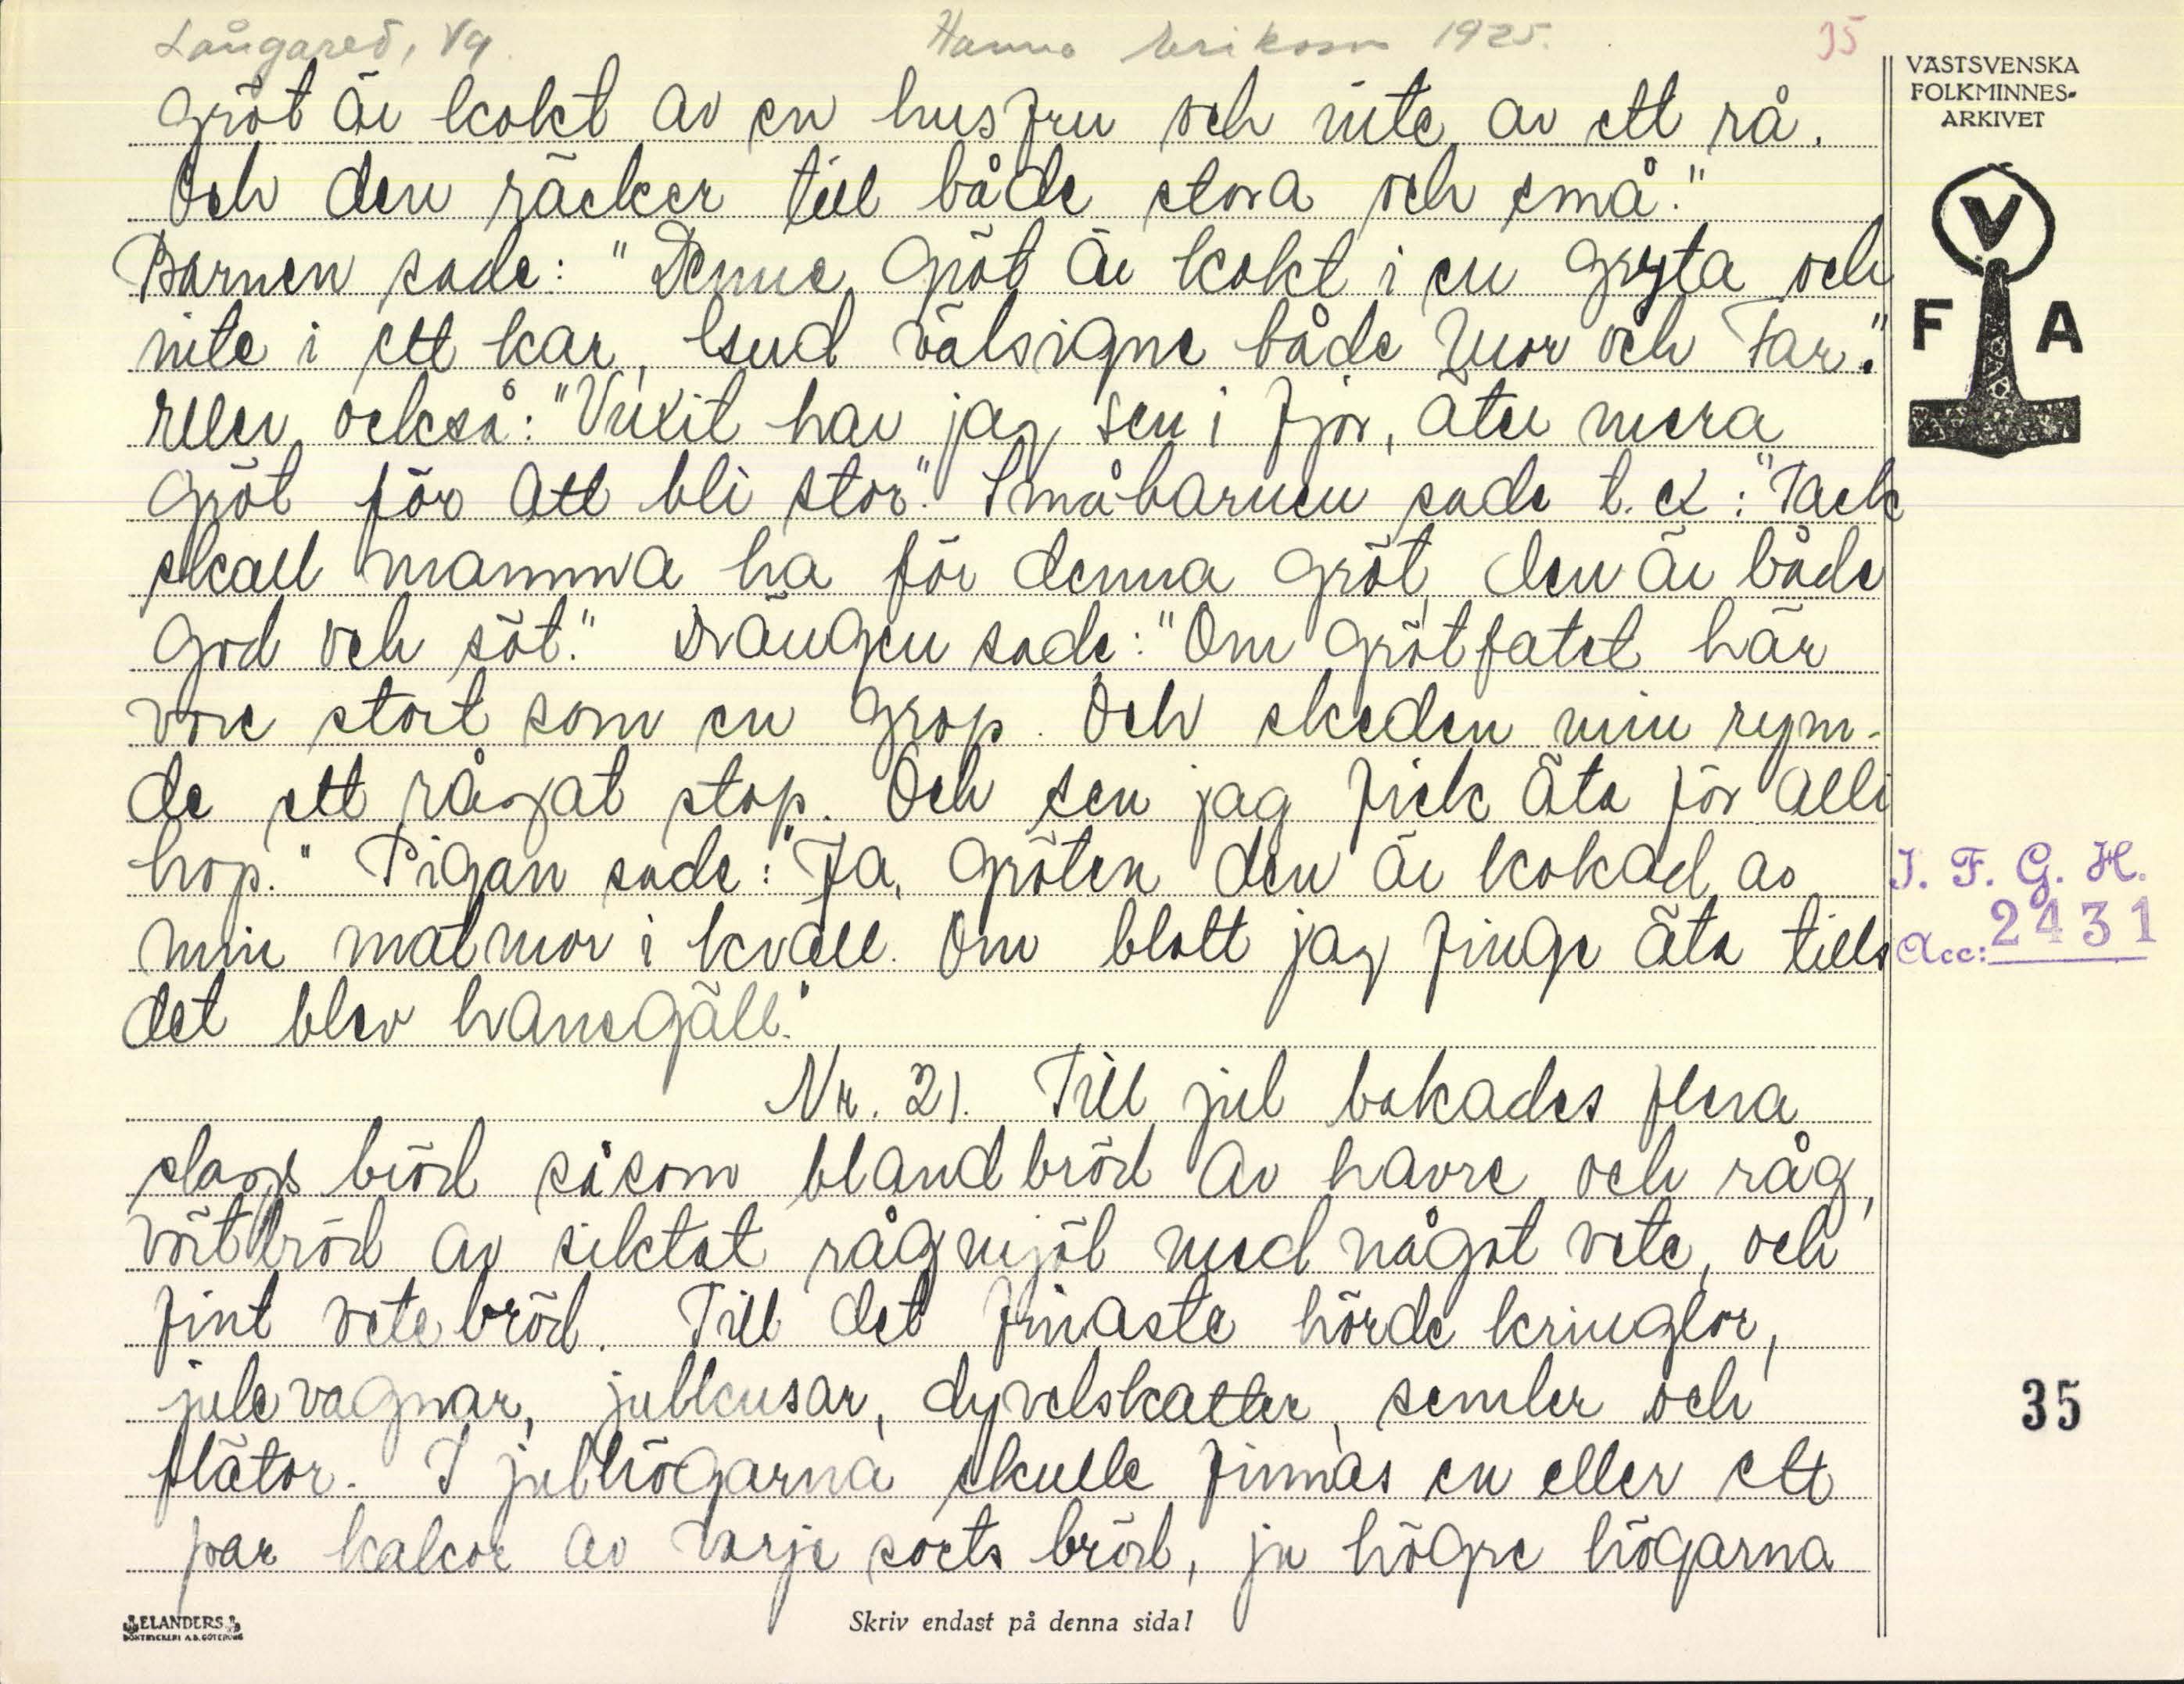 Långared, Vg. Hanna Eriksson 1925. 35
gröt är kokt av en husfru och inte av ett rå.
Och den räcker till både stora och små."
Barnen sade: "Denne gröt är kokt i en gryta och
inte i ett kar, Gud välsigne både Mor och Far."
Eller också: "Vuxit har jag sen i fjor, äter mera
gröt för att bli stor." Småbarnen sade t. ex: "Tack
skall mamma ha för denna gröt, den är både
god och söt." Drängen sade: "Om grötfatet här
vore stort som en grop. Och skeden min rym-
de ett rågat stop. Och sen jag fick äta för alli
hop." Pigan sade: "Ja, gröten den är kokad av
min matmor i kväll. Om blott jag finge äta tills
det blev hanegäll."
Nr. 21. Till jul bakades flera
slags bröd såsom blandbröd av havre och råg,
vörtbröd av siktat rågmjöl med något vete, och
fint vetebröd. Till det finaste hörde kringlor,
julevagnar, julkusar, dyvelskatter, semler och
flätor. I julhögarna skulle finnas en eller ett
par kakor av varje sorts bröd, ju högre högarna
VÄSTSVENSKA
FOLKMINNES-
ARKIVET
V
F A
I. F. G. H.
Acc: 2431
35
ELANDERS
BOKTRYCKERI A.B. GÖTEBORG
Skriv endast på denna sida!